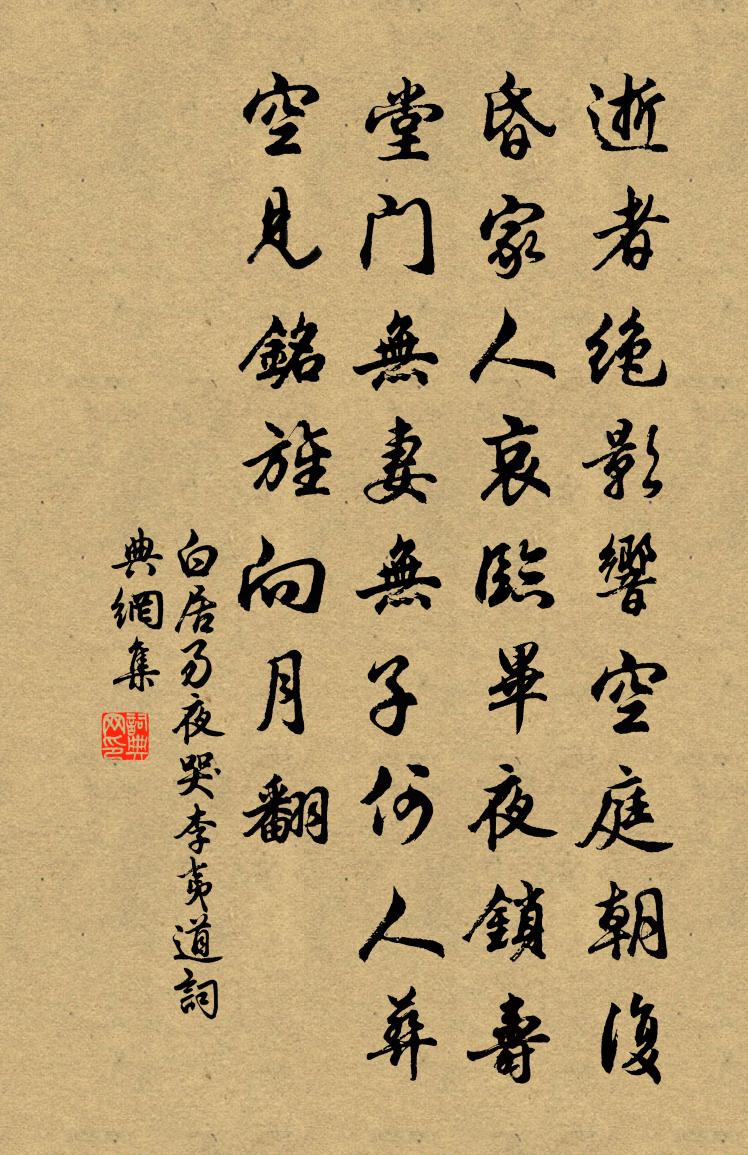 逝者絕影響空庭朝復
昏家人哀臨畢夜鎖壽
堂門無妻無子何人葬
空見銘旌向月翻
白居易夜哭李夷道詞
典網集
詞典网印